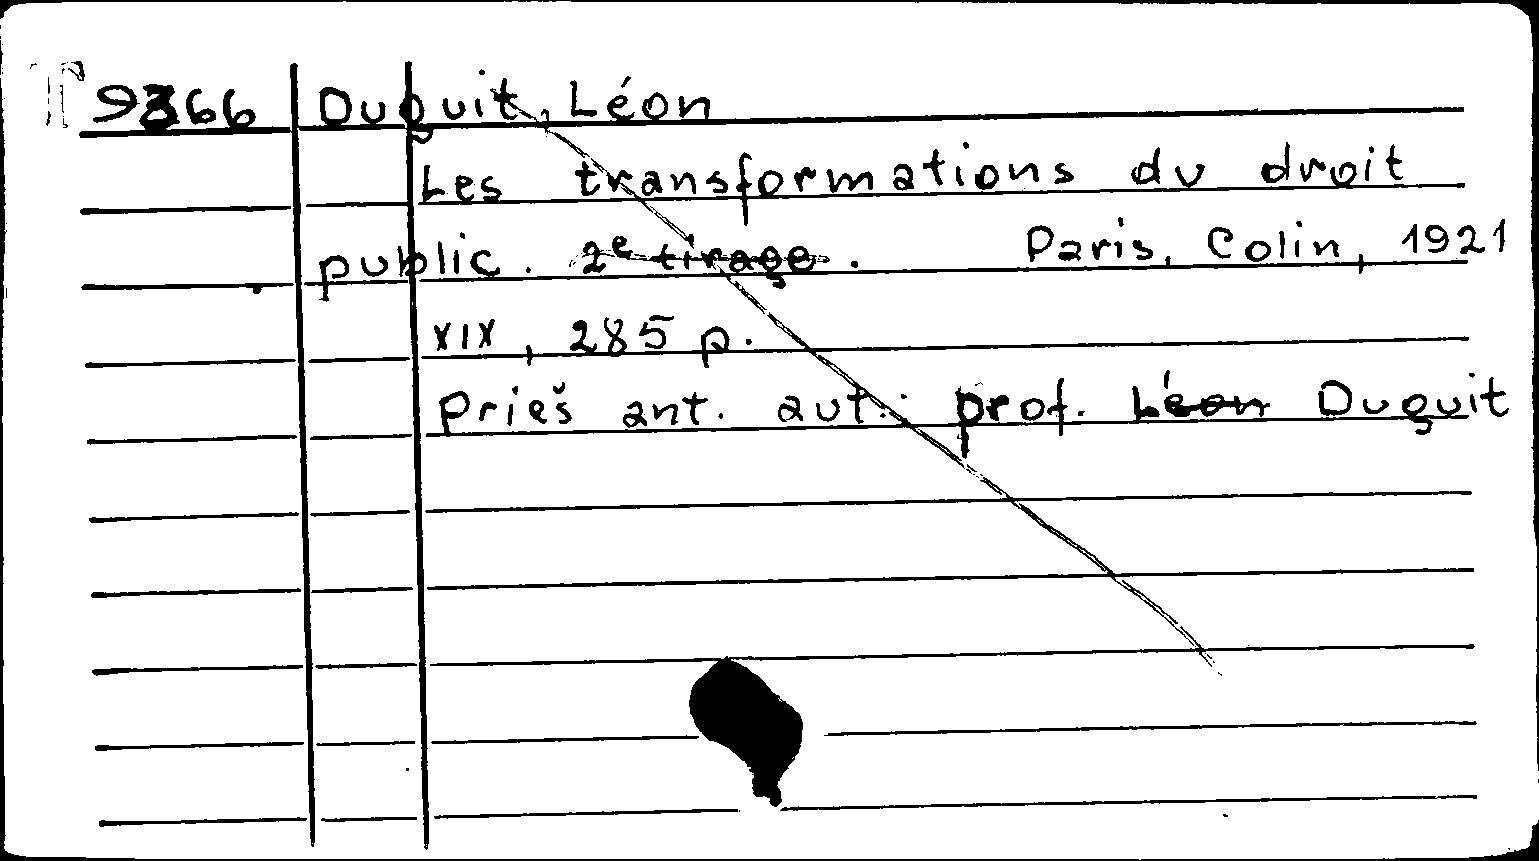 T 9366 Duguit, Léon
Les transformations du droit
public. 2e tirage. Paris, Colin, 1921
XIX, 285 p.
Prieš ant. aut.: prof. Léon Duguit